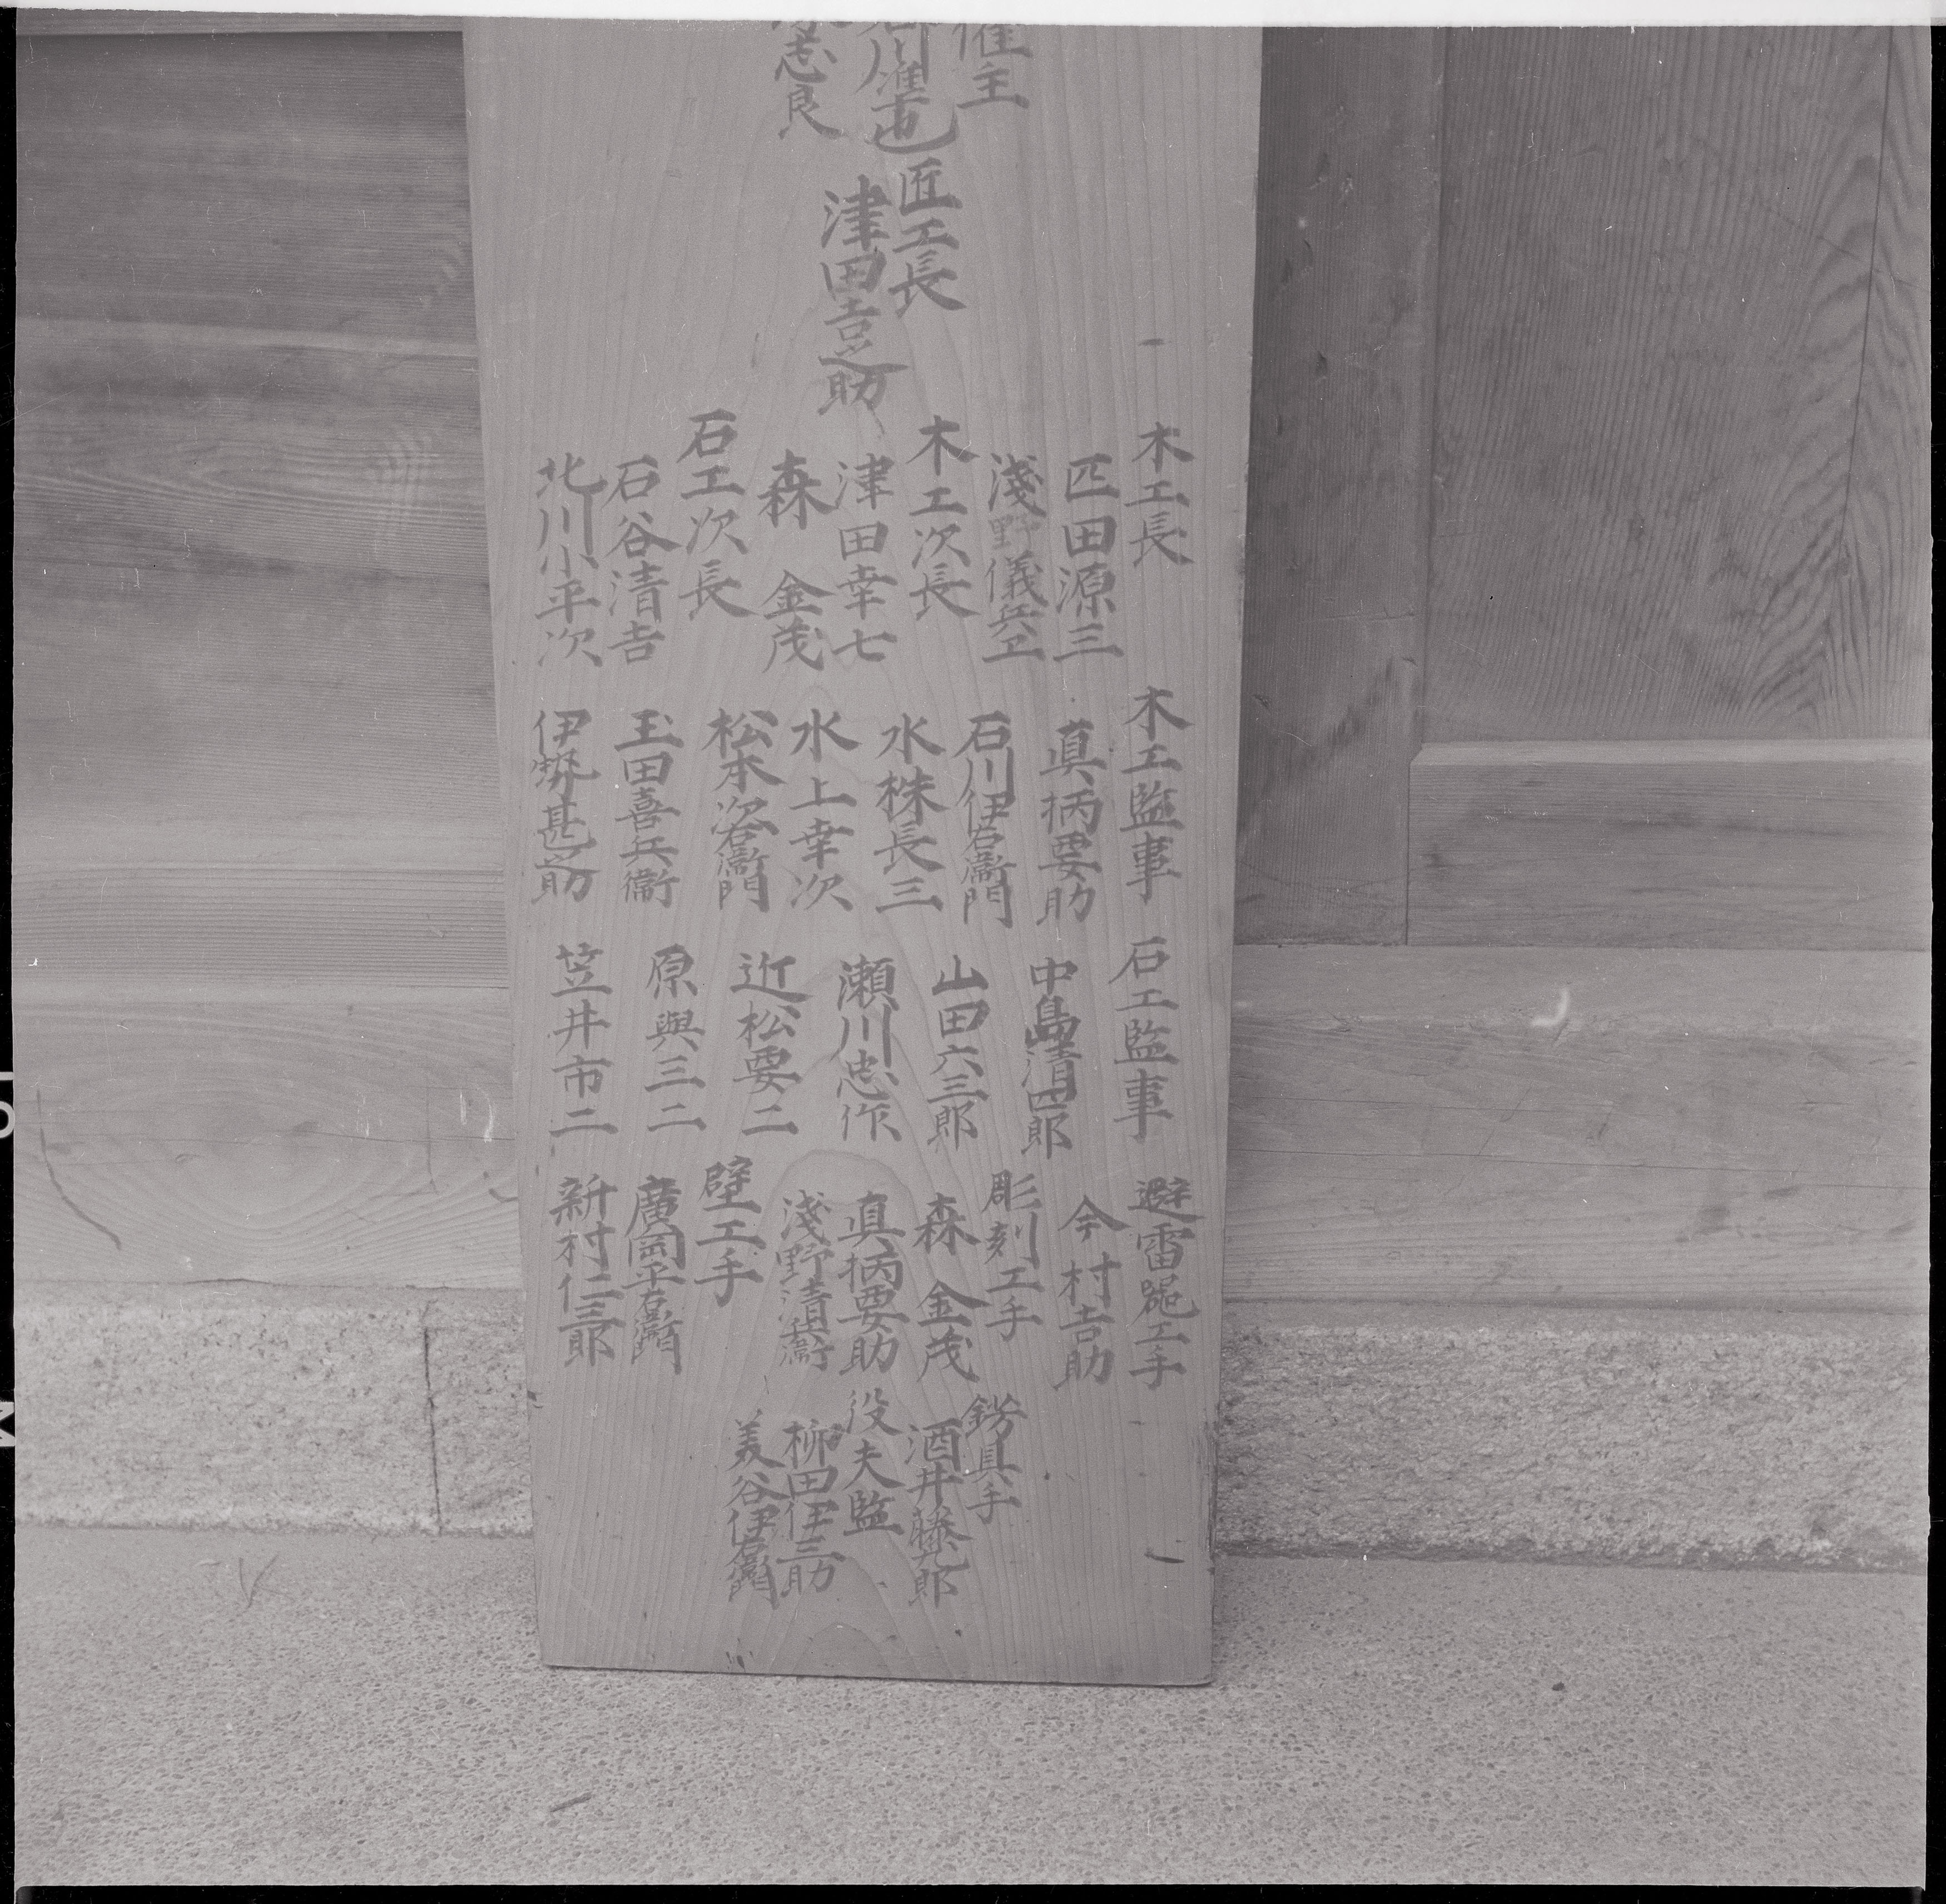 催主
川準也
志良
匠工長
津田吉之助
木工長
匹田源三
淺野儀兵卫
木工次長
津田幸七
森 金茂
石工次長
石谷清吉
北川小平次
木工監事
真柄要助
石川伊右衞門
水株長三
水上幸次
松本次右衞門
玉田喜兵衞
伊勢甚助
石工監事
中島清四郎
山田六三郎
瀬川忠作
近松要二
原與三二
笠井市二
避雷器工手
今村吉助
彫刻工手
森 金茂
真柄要助
淺野清兵衞
壁工手
廣岡平右衞門
新村仁三郎
錺具手
酒井藤九郎
役夫監
柳田伊三助
美谷伊右衞門